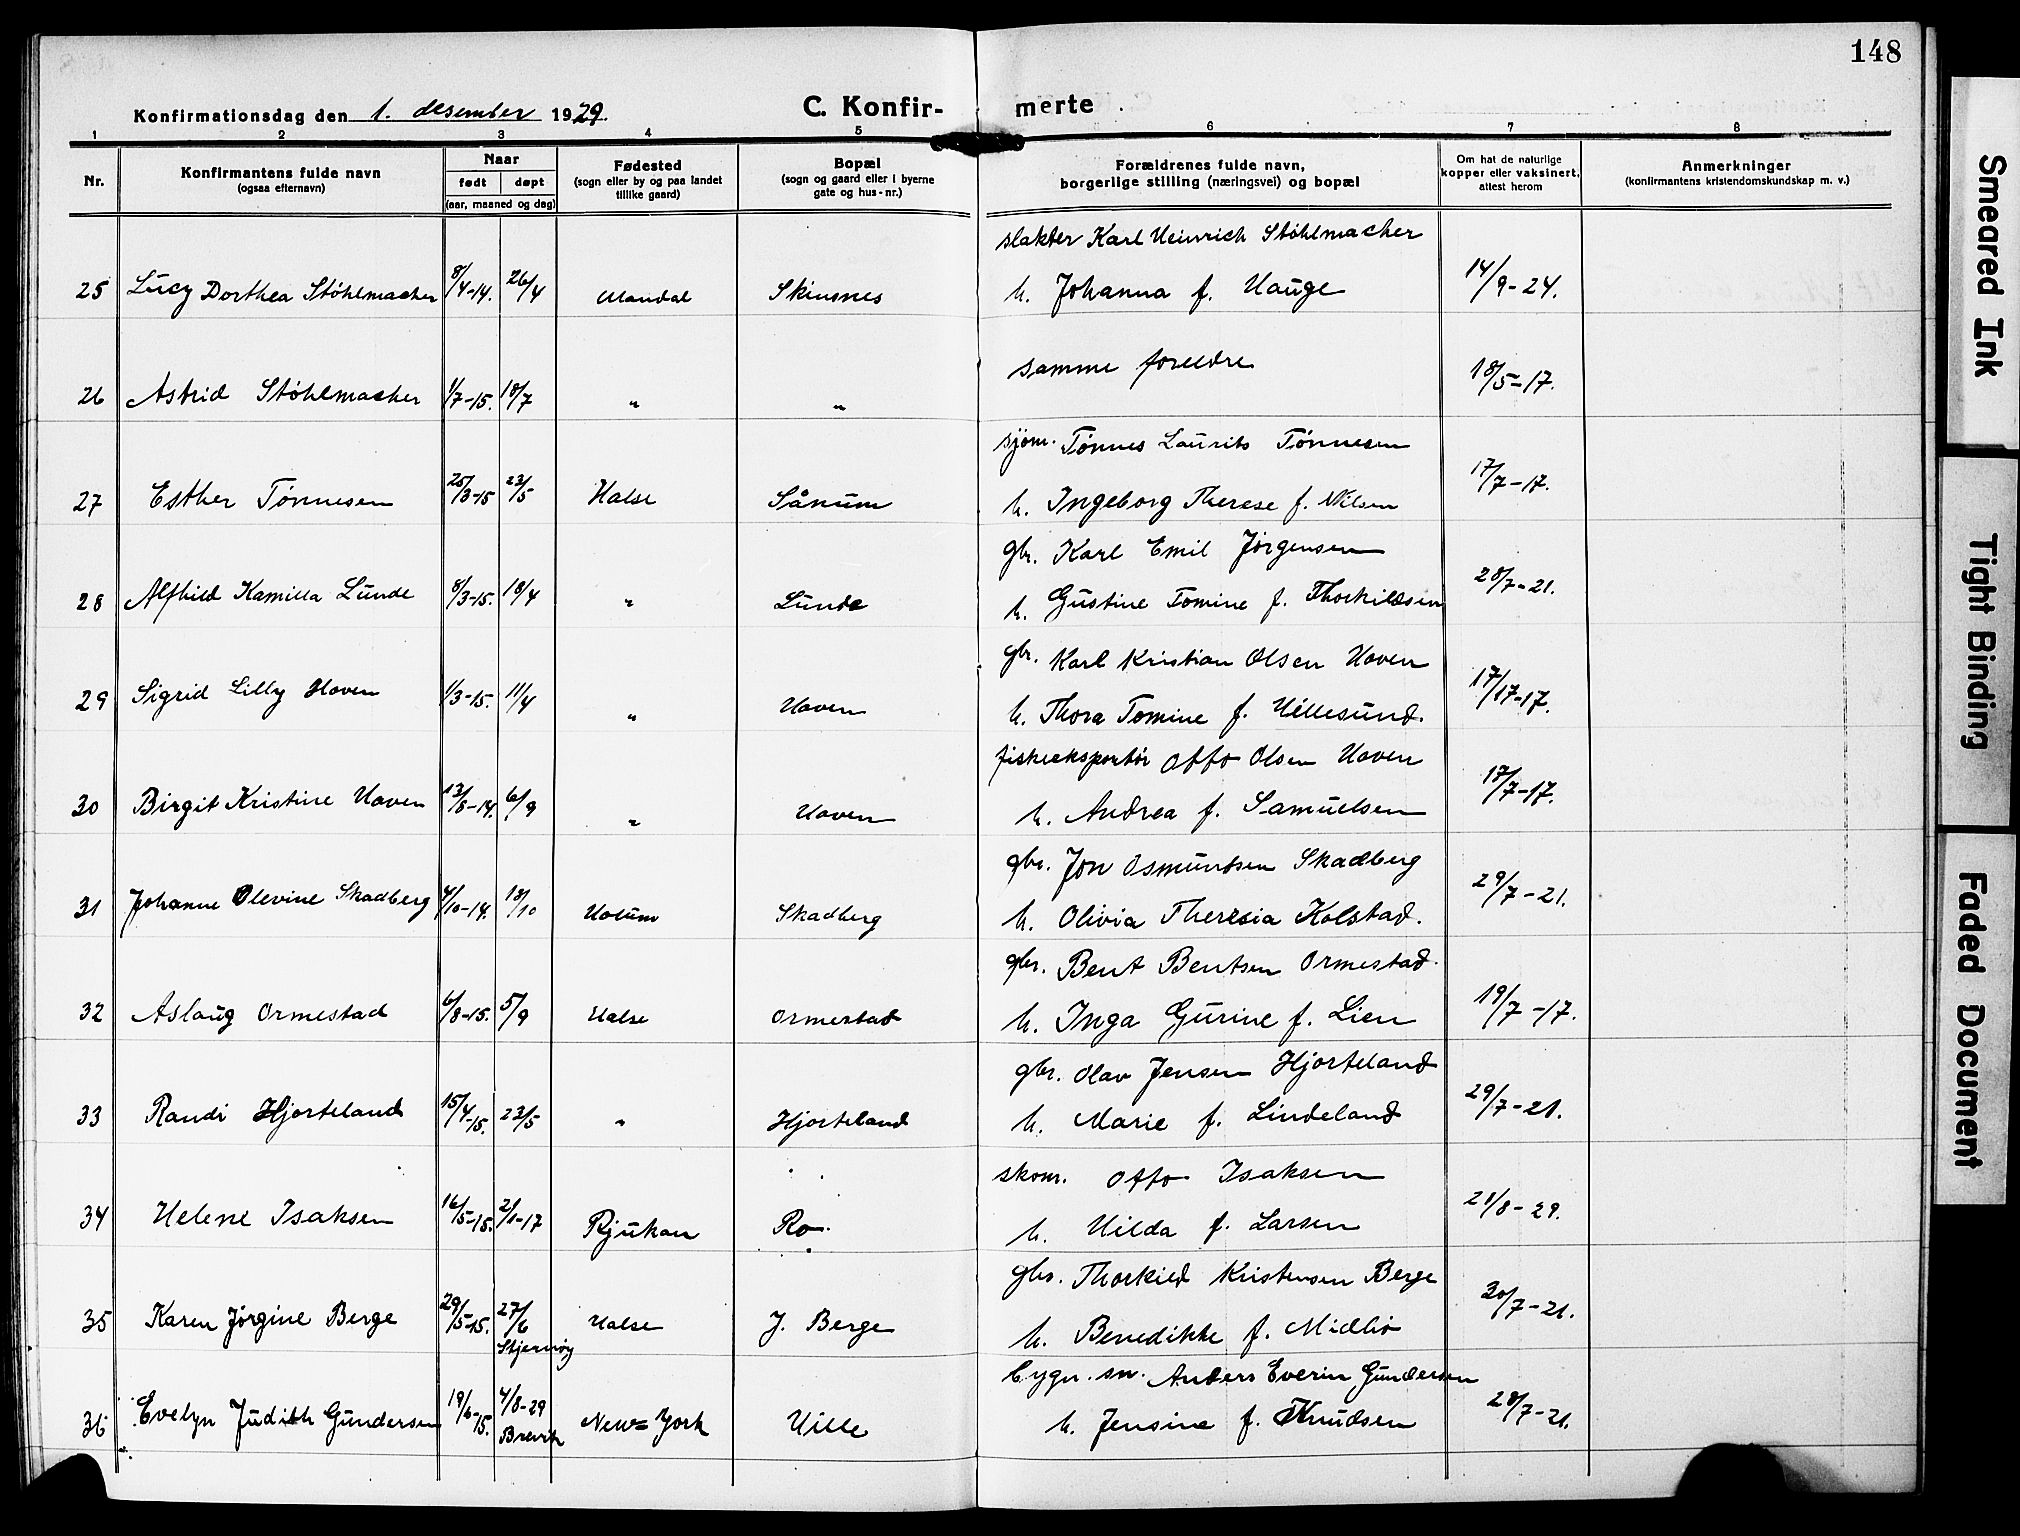 148
Konfirmationsdag den 1. desember 1929.
C. Konfirmerte
1 2 3 4 5 6 7 8
Nr.
Konfirmantens fulde navn
(ogsaa efternavn)
Naar
født døpt
(aar, maaned og dag)
Fødested
(sogn eller by og paa landet
tillike gaard)
Bopæl
(sogn og gaard eller i byerne
gate og hus-nr.)
Forældrenes fulde navn,
borgerlige stilling (næringsvei) og bopæl
Om hat de naturlige
kopper eller vaksinert,
attest herom
Anmerkninger
(konfirmantens kristendomskundskap m. v.)
slakter Karl Heinrich Støhlmacher
25 Lucy Dorthea Støhlmacher 8/4-14. 26/4 Mandal Skinsnes h. Johanna f. Hauge 14/9-24.
26 Astrid Støhlmacher 1/7-15. 18/7 " " samme foreldre 18/5-17.
sjøm. Tønnes Laurits Tønnesen
27 Esther Tønnesen 25/3-15 23/5 Halse Sånum h. Ingeborg Therese f. Nilsen 17/7-17.
gbr. Karl Emil Jørgensen
28 Alfhild Kamilla Lunde 8/3-15. 18/4 " Lunde h. Gustine Tomine f. Thorkildsen 28/7-21.
gbr. Karl Kristian Olsen Hoven
29 Sigrid Lilly Hoven 1/3-15. 11/4 " Hoven h. Thora Tomine f. Hillesund. 17/17-17.
fiskeeksportør Otto Olsen Hoven
30 Birgit Kristine Hoven 13/8-14. 6/9 " Hoven h. Andrea f. Samuelsen 17/7-17.
gbr. Jon Osmundsen Skadberg
31 Johanne Olevine Skadberg 4/10-14. 18/10 Holum Skadberg h. Olivia Theresia Kolstad. 29/7-21.
gbr. Bent Bentsen Ormestad.
32 Aslaug Ormestad 6/8-15. 5/9 Halse Ormestad h. Inga Gurine f. Lien 19/7-17.
gbr. Olav Jensen Hjorteland
33 Randi Hjorteland 15/4-15. 23/5 " Hjorteland h. Marie f. Lindeland 29/7-21.
skom. Otto Isaksen
34 Helene Isaksen 16/5-15. 2/1-17 Rjukan Ro. h. Hilda f. Larsen 21/8-29.
gbr. Thorkild Kristensen Berge
35 Karen Jørgine Berge 29/5-15. 27/6 Halse J. Berge h. Benedikke f. Midbø 30/7-21.
Stjernøy
bygn. sn. Anders Everin Gundersen
36 Evelyn Judith Gundersen 19/6-15. 4/8-29 New=York Hille h. Jensine f. Knudsen 28/7-21.
Brevik
Smeared Ink
Tight Binding
Faded Document